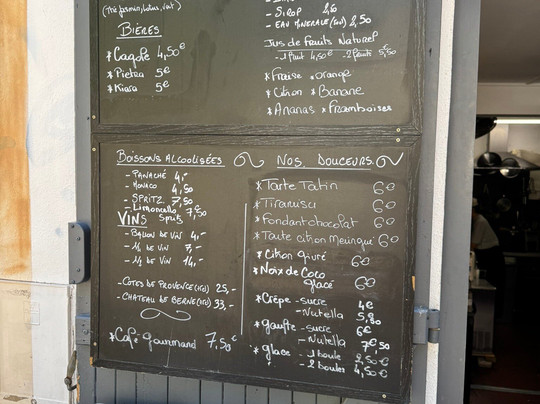 (Thé Jasmin, Lotus, Vert)
BIÈRES
*Cagole 4,50€
*Pietra 5€
*Kiara 5€
- SIROP 2,50
- EAU MINERALE (50cl) 2,50
JUS de FRUITS NATUREL
-1 fruit 4,50€ -2 fruits 5,50
*Fraise *orange
*Citron *Banane
*Ananas *Framboises
BOISSONS ALCOOLISÉES
- PANACHÉ 4,-
- MONACO 4,50
- SPRITZ 7,50
- Limoncello Spritz 7,50
VINS
- BALLON DE VIN 4,-
- 1/4 DE VIN 7,-
- 1/2 DE VIN 14,-
- COTES DE PROVENCE 25,-
- CHATEAU DE BERNE 33,-
*Café gourmand 7,50€
NOS DOUCEURS
*Tarte Tatin 6€
*Tiramisu 6€
*Fondant chocolat 6€
*Tarte citron Meringué 6€
*Citron givré 6€
*Noix de Coco glacé 6€
*Crêpe - sucre 4€
- Nutella 5,50
*gaufre - sucre 6€
- Nutella 7€50
*glace - 1 boule 2,50€
- 2 boules 4,50€